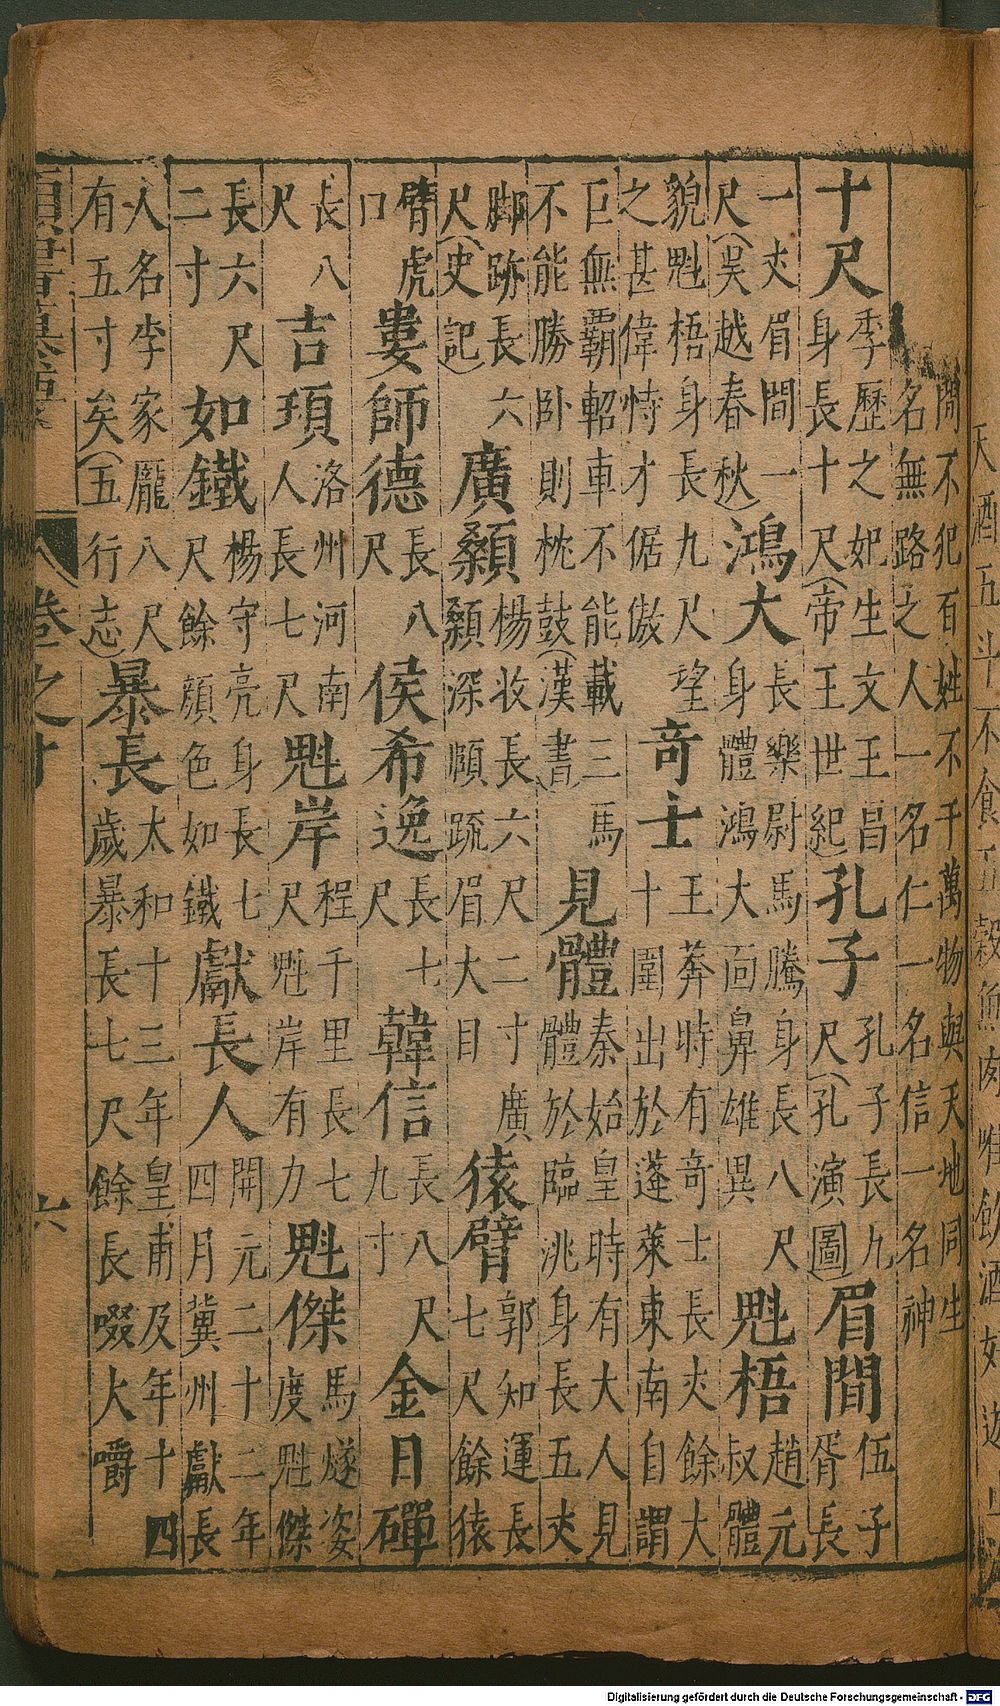 天酒五斗不食五穀魚肉唯飲酒好遊
間不犯百姓不千萬物與天地同生
名無路之人一名仁一名信一名神
十尺
季歷之妃生文王昌
身長十尺(帝王世紀)
孔子
孔子長九
尺(孔演圖)
眉間
伍子
胥長
一丈眉間一
尺(吳越春秋)
鴻大
長樂尉馬騰身長八尺
身體鴻大面鼻雄異
魁梧
趙元
叔體
貌魁梧身長九尺望
之甚偉恃才倨傲
奇士
王莽時有奇士長丈餘大
十圍出於蓬萊東南自謂
巨無霸軺車不能載三馬
不能勝卧則枕鼓(漢書)
見體
秦始皇時有大人見
體於臨洮身長五丈
脚跡長六
尺(史記)
廣顙
楊收長六尺二寸廣
顙深頤疏眉大目
猿臂
郭知運長
七尺餘猿
臂虎
口
婁師德
長八
尺
侯希逸
長七
尺
韓信
長八尺
九寸
金日磾
長八
尺
吉頊
洛州河南
人長七尺
魁岸
程千里長七
尺魁岸有力
魁傑
馬燧姿
度魁傑
長六尺
二寸
如鐵
楊守亮身長七
尺餘顏色如鐵
獻長人
開元二十二年
四月冀州獻長
人名李家龐八尺
有五寸矣(五行志)
暴長
太和十三年皇甫及年十四
歲暴長七尺餘長啜大嚼
卷之十
六
Digitalisierung gefördert durch die Deutsche Forschungsgemeinschaft - DFG